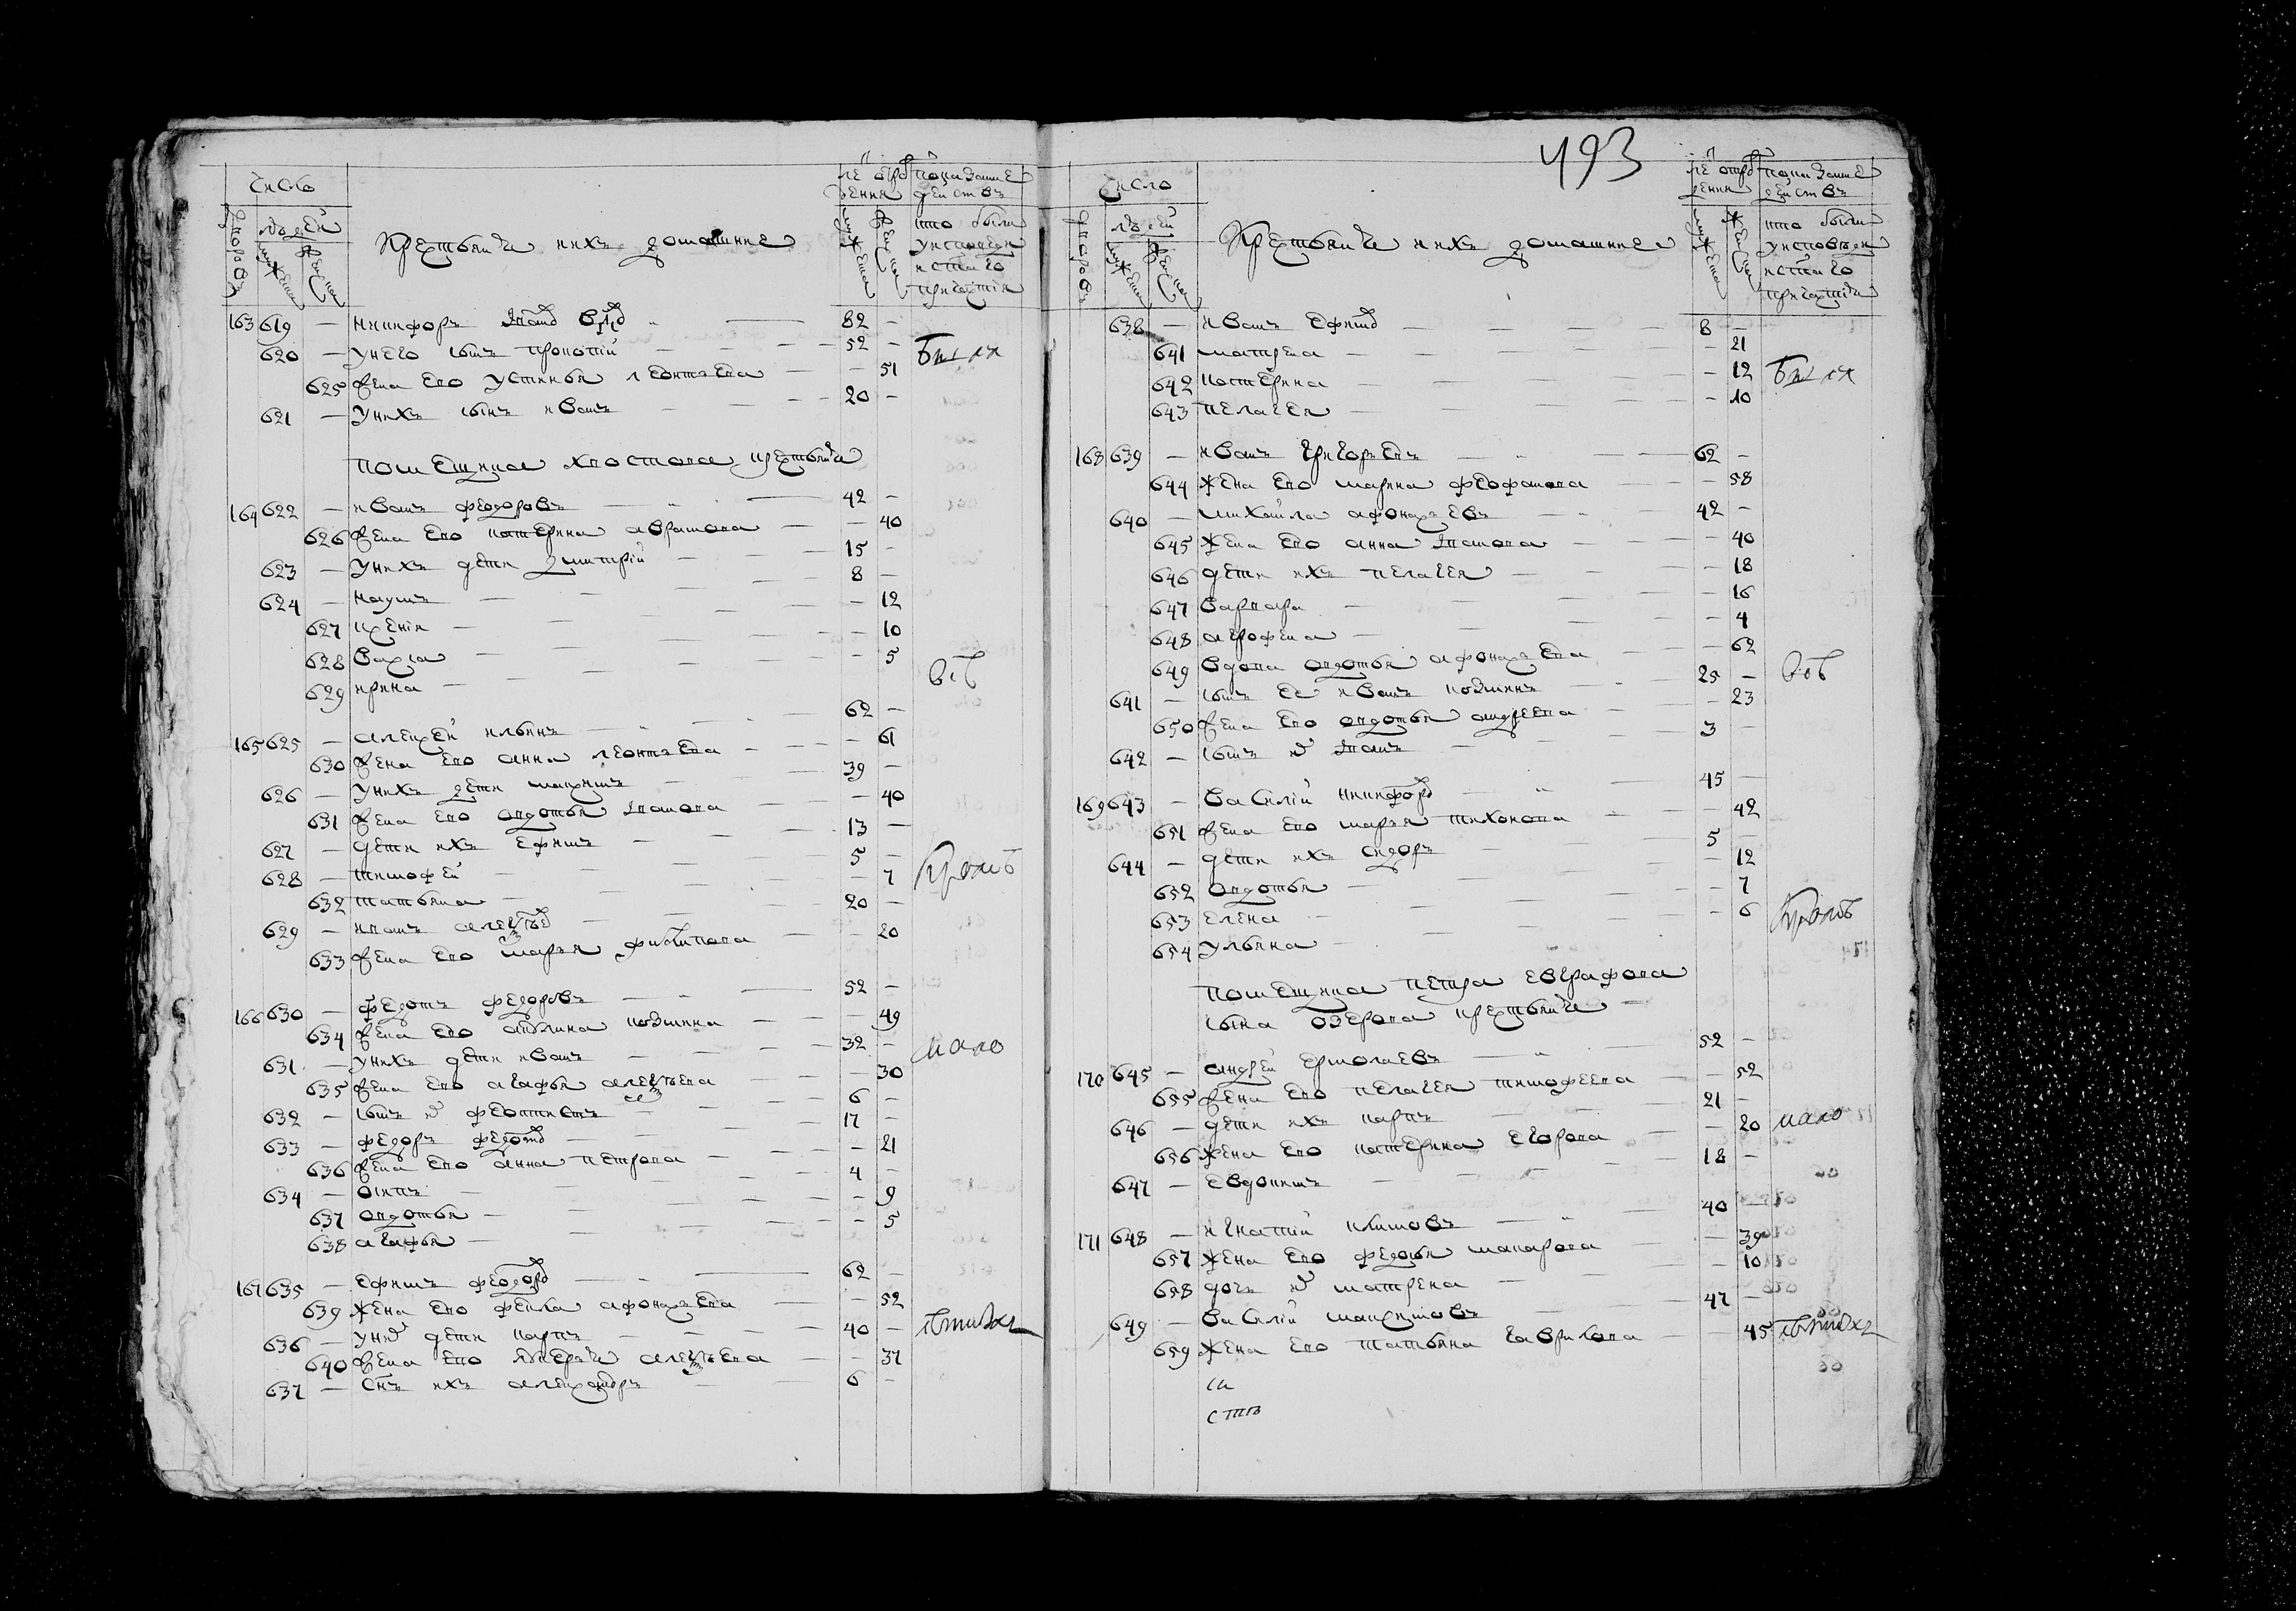 Число
людей
Крестьяня и ихъ домашние
что были
у исповеди
и стаго
причастия
163 619 — Никифоръ 82 —
620 — У него сынъ Прокопiй 52 —
625 Жена ево Устинья Леонтьева — 51
621 — У нихъ сынъ Иванъ 20 —
Были
помещика Хвостова крестьяня
164 622 — Иванъ Федоровъ 42 —
626 Жена ево Катерина Аврамова — 40
623 — У нихъ дети Дмитрiй 15 —
624 — Наумъ 8 —
627 Ксенiя — 12
628 Васса — 10
629 Ирина — 5
165 625 — Алексей Ильинъ 62 —
630 Жена ево Анна Леонтьева — 61
626 — У нихъ дети Максимъ 39 —
631 Жена ево Авдотья Iванова — 40
627 — Дети ихъ Ефимъ 13 —
628 — Тимофей 5 —
632 Татьяна — 7
629 — Иванъ Алексеев 20 —
633 Жена ево Марья Филипова — 20
Кроме
166 630 — Федотъ Федоровъ 52 —
634 Жена ево Акулина Козмина — 49
631 — У нихъ дети Иванъ 32 —
635 Жена ево Агафья Алексеева — 30
632 — Сынъ их Феоктистъ 6 —
633 — Федоръ Федотов 17 —
636 Жена ево Анна Петрова — 21
634 — Осипъ 4 —
637 Авдотья — 9
638 Агафья — 5
мало
167 635 — Ефимъ Феодоров 62 —
639 Жена ево Фекла Афонасьева — 52
636 — У них дети Карпъ 40 —
640 Жена ево Алексеева — 37
637 — Снъ ихъ Александръ 6 —
493
Число
людей
Крестьяня и ихъ домашние
что были
у исповеди
и стаго
причастия
638 — Иванъ Ефимов 8 —
641 Матрена — 21
642 Катерина — 12
643 Пелагея — 10
Были
168 639 — Иванъ Григорьевъ 62 —
644 Жена ево Марина Феофанова — 58
640 — Михайла Афонасьевъ 42 —
645 Жена ево Анна Iванова — 40
646 Дети ихъ Пелагея — 18
647 Варвара — 16
648 Агрофена — 4
649 Вдова Авдотья Афонасьева — 62
641 — Сынъ ее Иванъ Козминъ 25 —
650 Жена ево Авдотья Андреева — 23
642 — Сынъ их Iванъ 3 —
169 643 — Василiй Никифоров 45 —
651 Жена ево Марья Тихонова — 42
644 — Дети ихъ Сидоръ 5 —
652 Авдотья — 12
653 Елена — 7
654 Ульяна — 6
Кроме
помещика Петра Евграфова
сына Озерова крестьяня
170 645 — Андрей Ермолаевъ 52 —
655 Жена ево Пелагея Тимофеева — 52
646 — Дети ихъ Карпъ 21 —
656 Жена ево Катерина Егорова — 20
647 — Евдокимъ 18 —
мало
171 648 — Игнатiй Климовъ 40 —
657 Жена ево Федосья Макарова — 39
658 Дочь их Матрена — 10
649 — Василiй Максимовъ 47 —
659 Жена ево Татьяна Гаврилова — 45